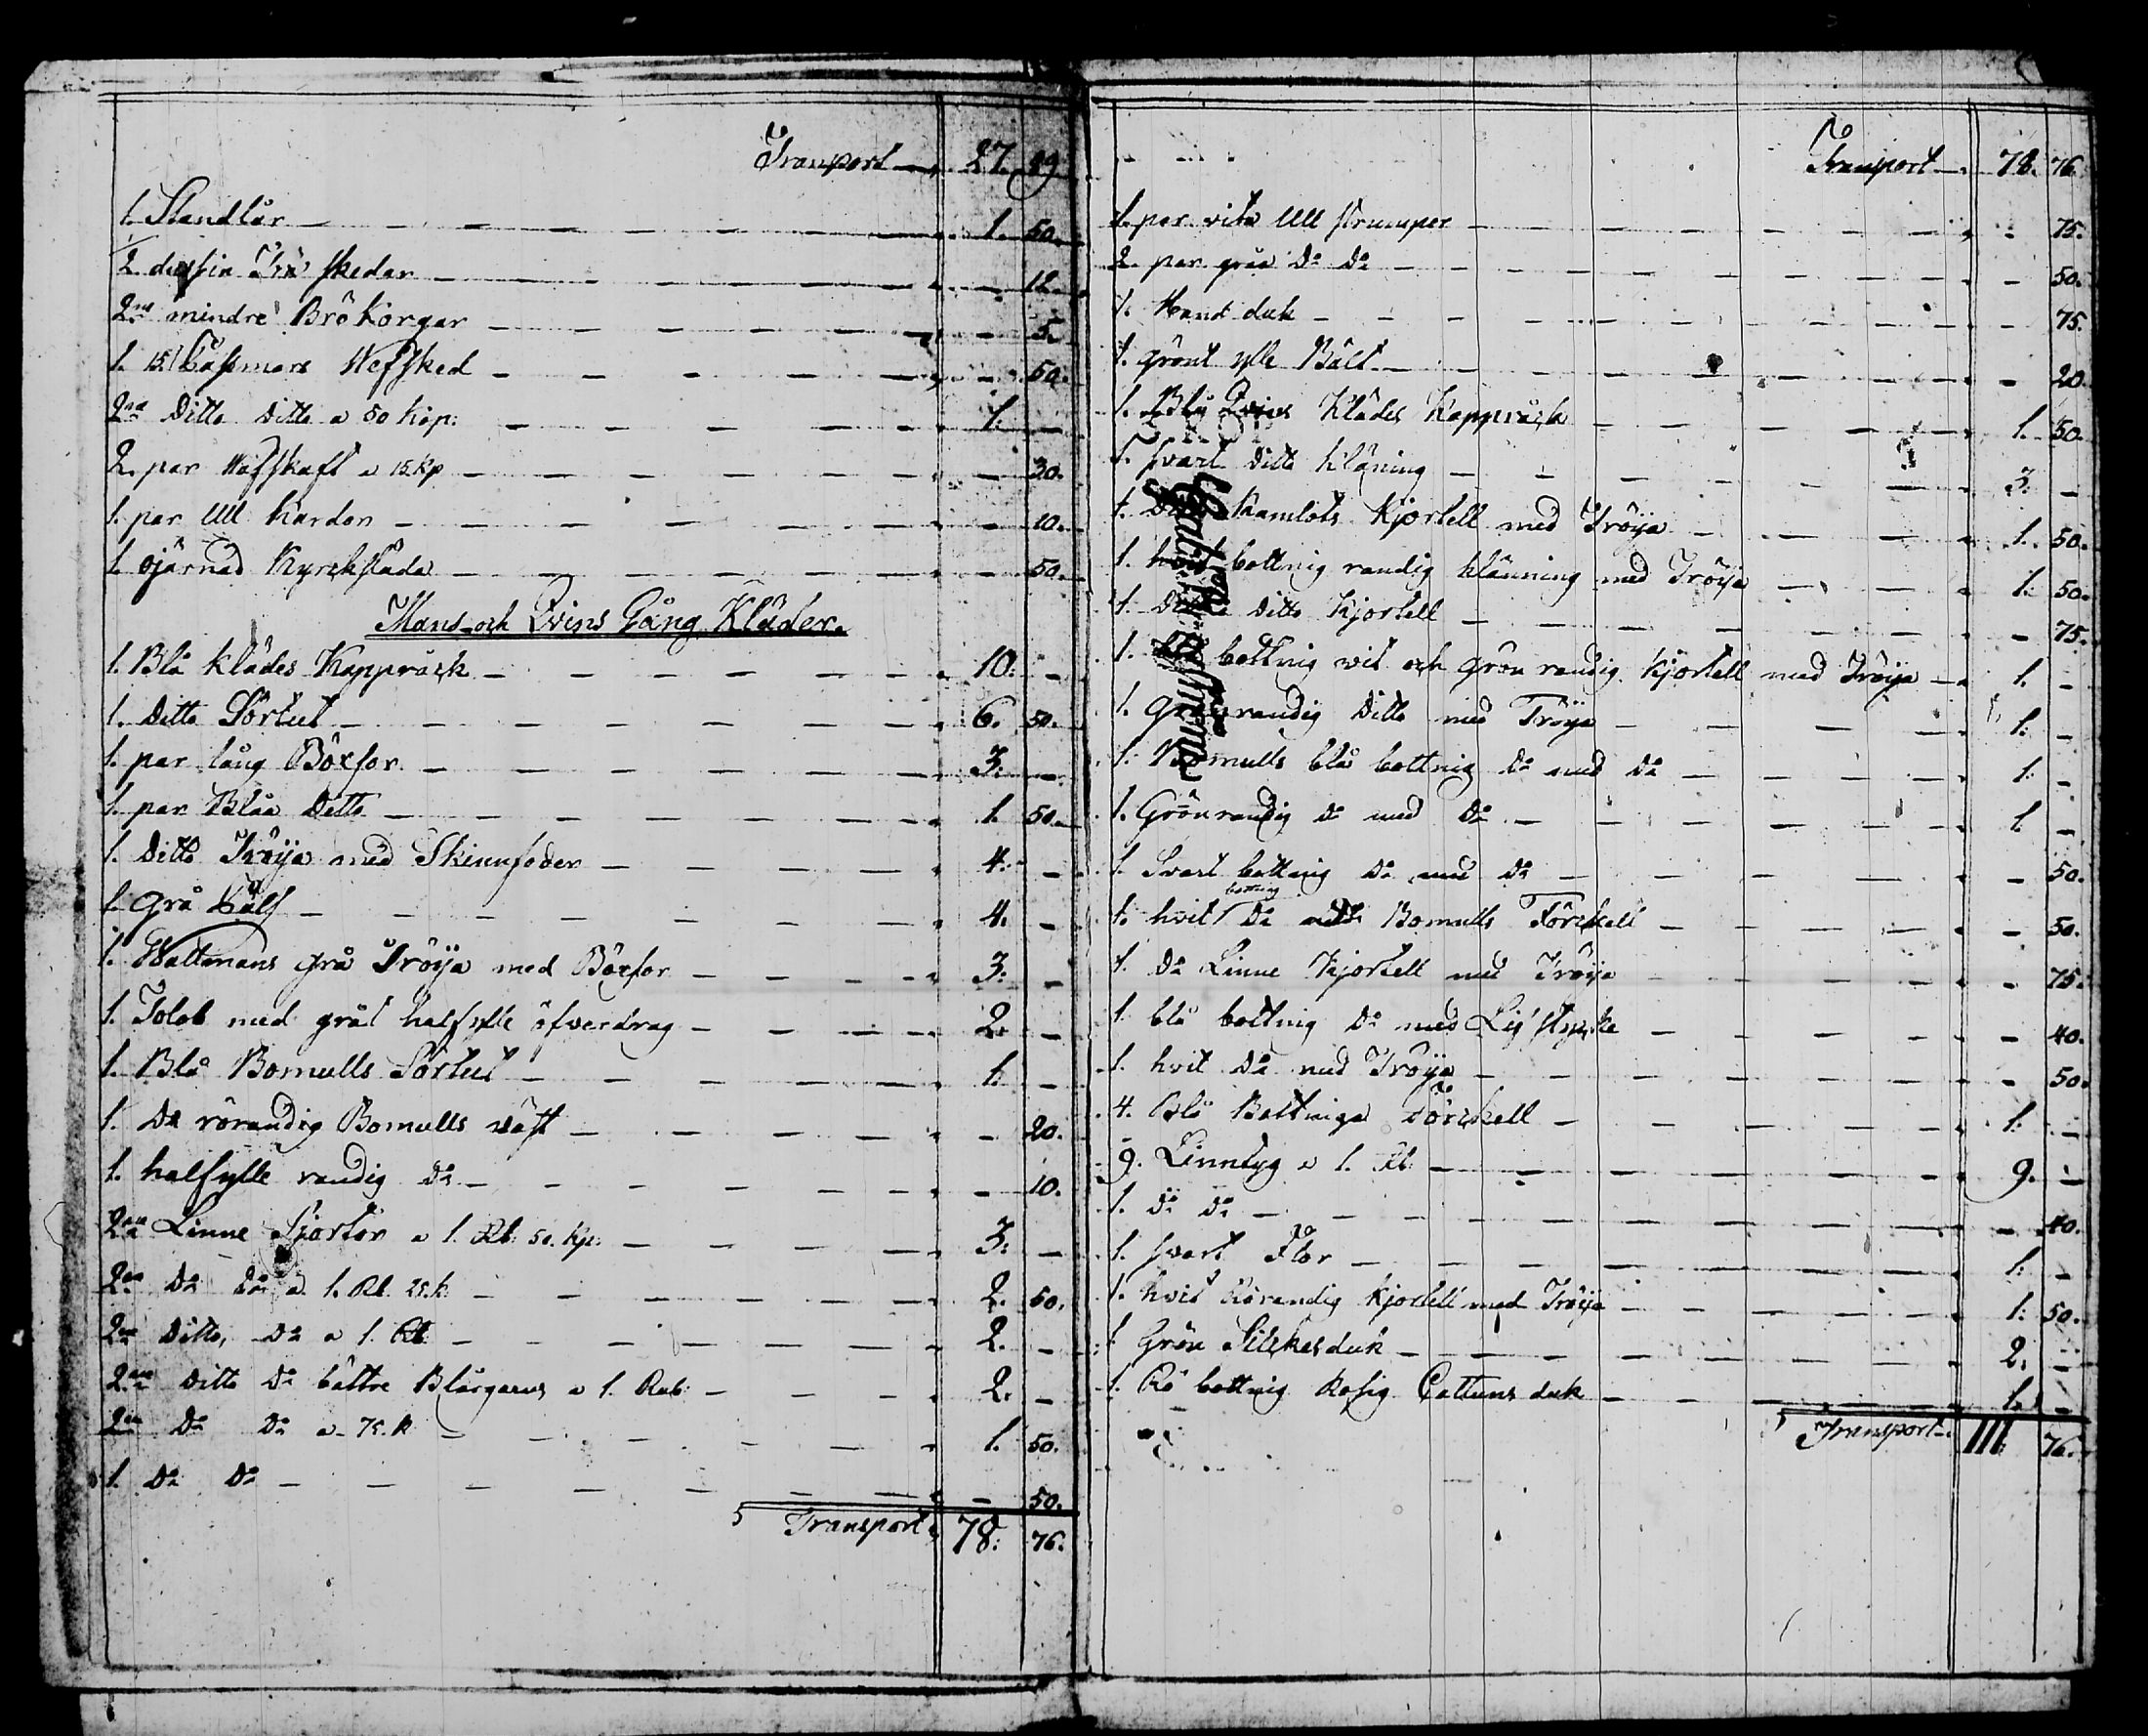 Transport 27. 89
1. Standkär 1. 50.
2. dussin Trä skedar 12.
2ne mindre Brökorgar 5.
1. 15. Passmans Wefsked 50.
2ne Ditto Ditto a 50 kop: 1.
2. par Wäfskaft a 15 kp 30.
1. par Ull kardor 10.
1. Kyrckslada 50.
Mans- och Qvins Gång Kläder.
1. Blå klädes Kappråck 10.
1. Ditto Sortut 6. 50.
1. par lång Böxsor 3.
1. par Blåa Ditto 1. 50.
1. Ditto Tröija med Skinnfoder 4.
1. Grå Päls 4.
1. Waltmans grå Tröija med Böxsor 3.
1. Tolob med grät halfylle öfwerdrag 2.
1. Blå Bomulls Sortut 1.
1. Do rörandig Bomulls wäst 20.
1. halfylle randig Do 10.
2ne Linne Sjortor a 1. Rb: 50. kp: 3.
2ne Do Do a 1. Rb. 25. k 2. 50.
2ne Ditto, Do a 1. Rb 2.
2ne Ditto Do bättre Blårgarns a 1. Rub: 2.
2ne Do Do a 75. k 1. 50.
1. Do Do 50.
Transport 78. 76.
Transport 78. 76.
1. par wita Ull strumper 75.
2. par gråa Do Do 50.
1. Hand duk 75.
1. grönt ylle Bält 20.
1. Blå Qvins Klädes Kappråck 1. 50.
1. svart Ditto kläning 3.
1. Kamlots Kjortell med Tröija 1. 50.
1. hvit bottnig randig klänning med Tröija 1. 50.
1. Ditto Kjortell 75.
1. bottnig wit och grön randig Kjortell med Tröija 1.
1. Grönrandig Ditto med Tröija 1.
1. Bomulls blå bottnig Do med Do 1.
1. Grönrandig Do med Do 1.
1. Svart bottnig Do med Do 50.
bottnig
1. hvit Do Bomulls Förckell 50.
1. Do Linne Kjortell med Tröija 75.
1. blå bottnig Do med Lifstycke 40.
1. hvit Do med Tröija 50.
4. Blå Bottniga Förckell 1.
9. Linntyg a 1. Rb 9.
1. Do Do 40.
1. svart Flor 1.
1. hvit Rörandig kjortell med Tröija 1. 50.
1. Grön Silckesduk 2.
1. Rö bottnig Rosig Cattuns duk 1.
Transport 111. 76.